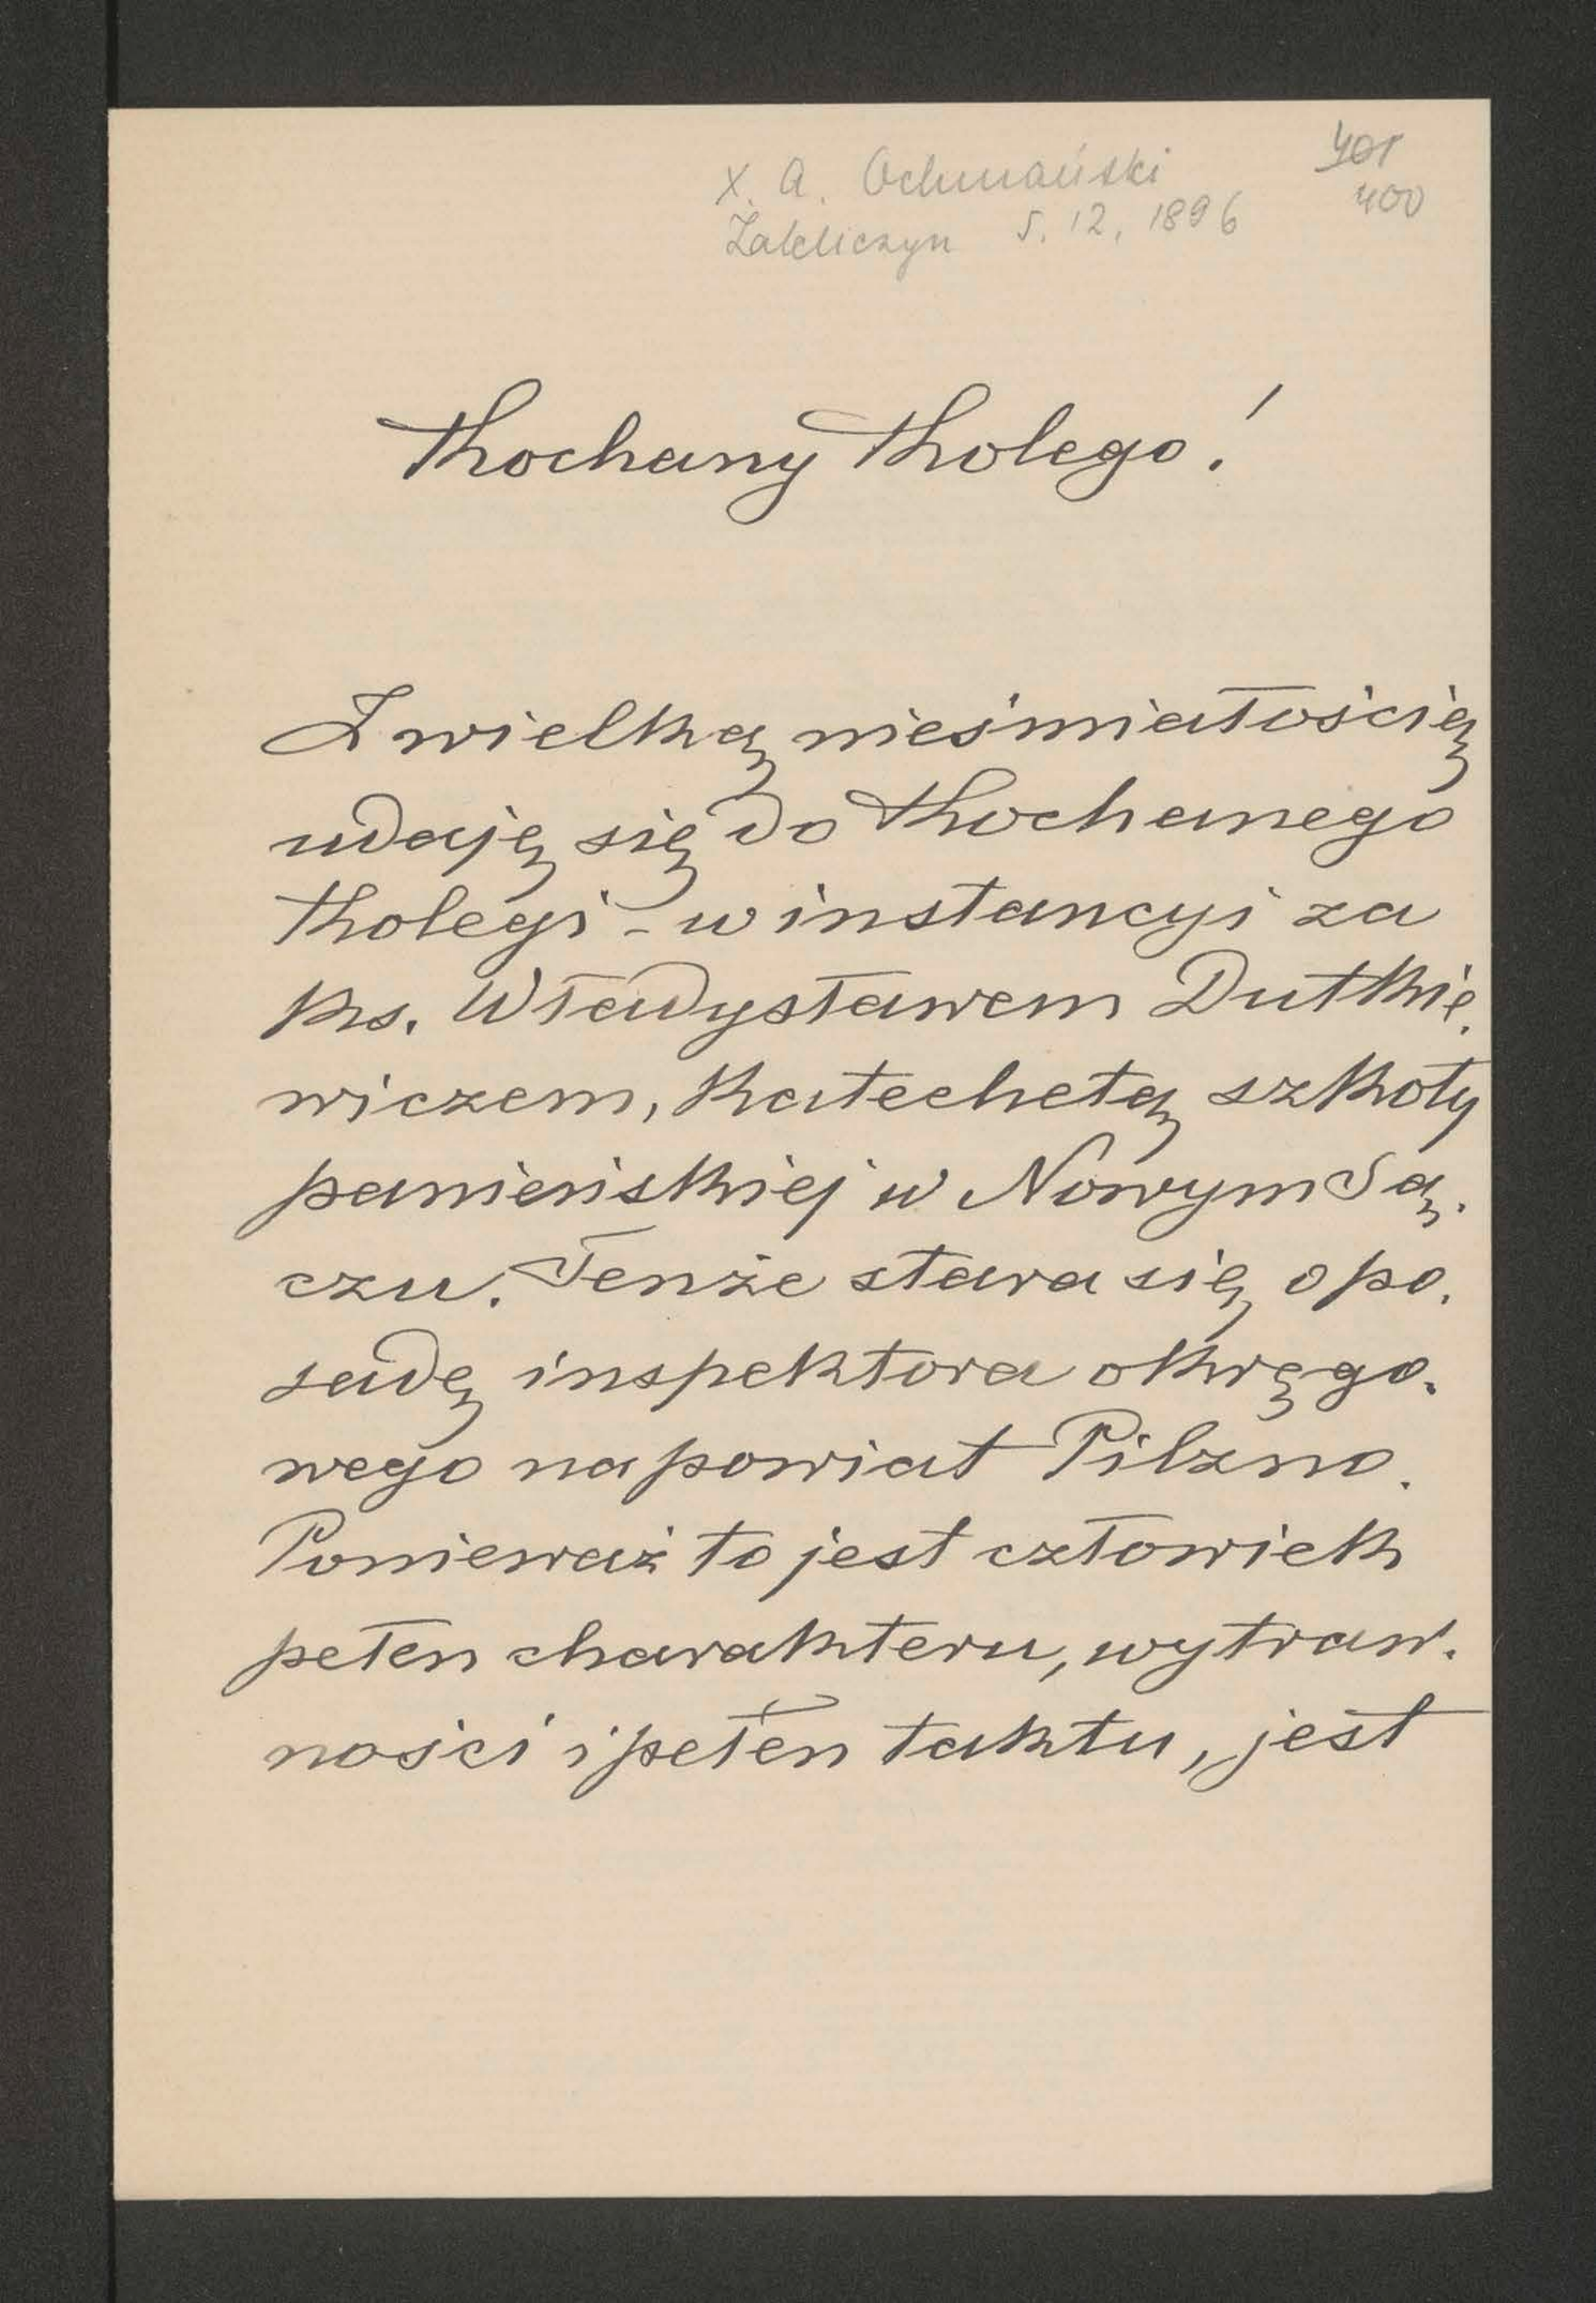 X. A. Ochmański
401
Zakliczyn 5. 12. 1896
400
Kochany Kolego!
Z wielką nieśmiałością
udaję się do Kochanego
Kolegi - w instancyi za
ks. Władysławem Dutkie.
wiczem, katechetą szkoły
panieńskiej w Nowym Są.
czu. Tenże stara się o po.
sadę inspektora okręgo.
wego na powiat Pilzno.
Ponieważ to jest człowiek
pełen charakteru, wytraw.
ności i pełen taktu, jest